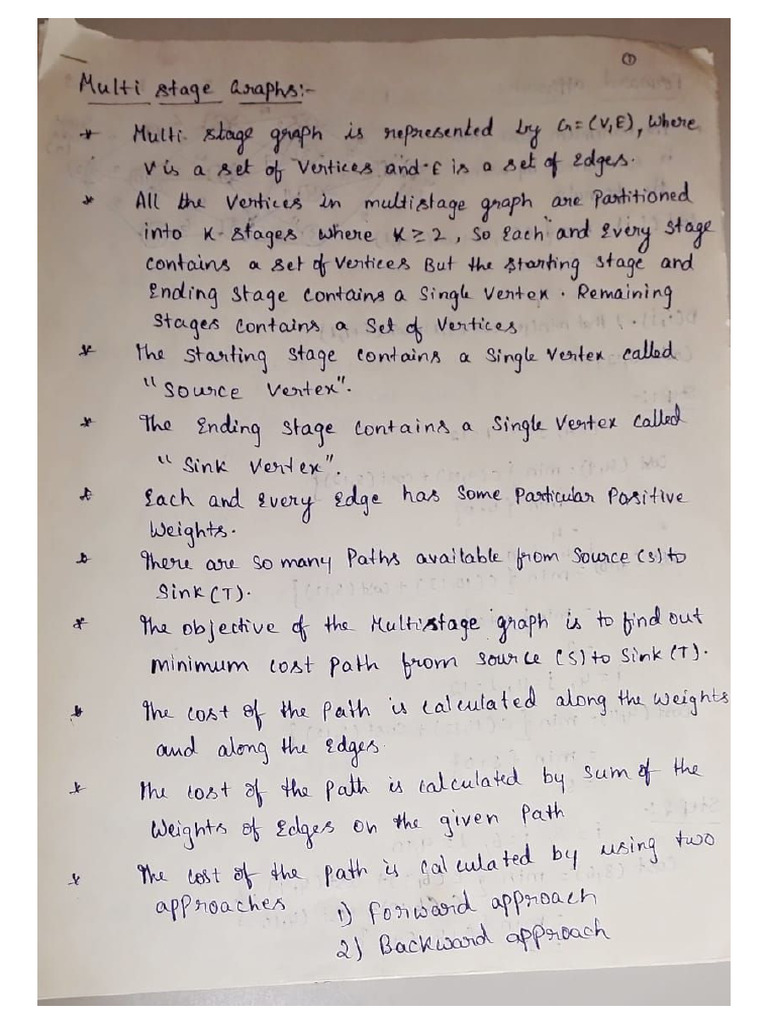 ①
Multi stage Graphs:-
* Multi stage graph is represented by G=(V,E), where
V is a set of Vertices and E is a set of Edges.
* All the vertices in multistage graph are Partitioned
into K-stages where K≥2, So Each and Every stage
contains a set of vertices But the starting stage and
Ending stage contains a single vertex. Remaining
stages contains a set of vertices
* The starting stage contains a single vertex called
"Source Vertex".
* The Ending stage contains a single vertex called
"Sink vertex".
* Each and Every Edge has some Particular Positive
Weights.
* There are so many Paths available from source (S) to
Sink (T).
* The objective of the Multistage graph is to find out
minimum cost path from source (S) to Sink (T).
* The cost of the path is calculated along the weights
and along the Edges.
* The cost of the path is calculated by sum of the
Weights of Edges on the given Path
* The cost of the path is calculated by using two
approaches 1) Forward approach
2) Backward approach